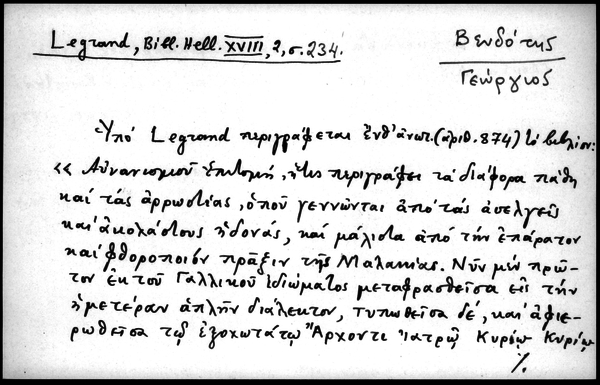 Legrand, Bibl. Hell. XVIII, 2, σ. 234.
Βενδότης
Γεώργιος
Ὑπό Legrand περιγράφεται ἐνθ' ἀνωτ. (ἀριθ. 874) τό βιβλίον:
«Αὐνανισμοῦ ἐπιτομή, ἥτις περιγράφει τά διάφορα πάθη
καί τάς ἀρρωστίας, ὁποῦ γεννῶνται ἀπό τάς ἀσελγεῖς
καί ἀκολάστους ἡδονάς, καί μάλιστα ἀπό τήν ἐπάρατον
καί φθοροποιόν πρᾶξιν τῆς Μαλακίας. Νῦν μέν πρῶ-
τον ἐκ τοῦ Γαλλικοῦ ἰδιώματος μεταφρασθεῖσα εἰς τήν
ἡμετέραν ἁπλῆν διάλεκτον, τυπωθεῖσα δέ, καί ἀφιε-
ρωθεῖσα τῷ ἐξοχωτάτῳ Ἄρχοντι Ἰατρῷ Κυρίῳ Κυρίῳ
./.